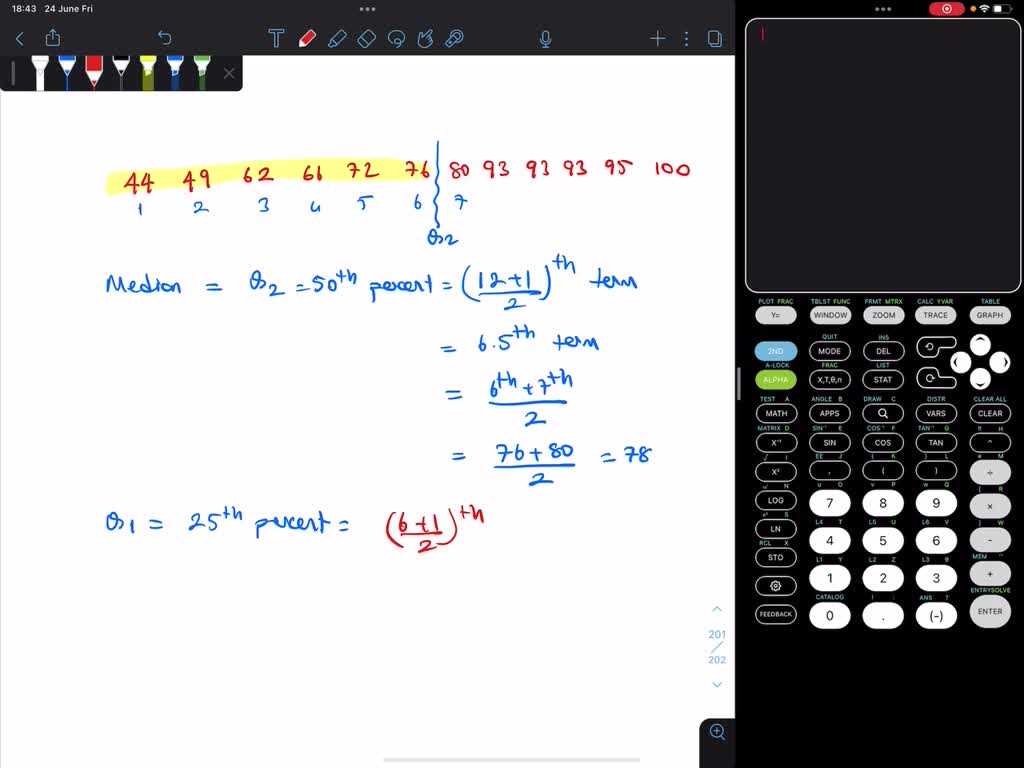 18:43 24 June Fri
T
44 49 62 66 72 76 80 93 93 93 95 100
1 2 3 4 5 6 7
Q2
Median = Q2 = 50th percent = (12+1/2)th term
= 6.5th term
= 6th + 7th / 2
= 76+80 / 2 = 78
Q1 = 25th percent = (6+1/2)th
201
202
PLOT FRAC TBLST FUNC FRMT MTRX CALC YVAR TABLE
Y= WINDOW ZOOM TRACE GRAPH
QUIT INS
2ND MODE DEL
A-LOCK FRAC LIST
ALPHA X,T,θ,n STAT
TEST A ANGLE B DRAW C DISTR CLEAR ALL
MATH APPS VARS CLEAR
MATRIX D SIN⁻¹ E COS⁻¹ F TAN⁻¹ G π H
X⁻¹ SIN COS TAN ^
√ I EE J { K } L e M
X² , ( ) ÷
N u O v P w Q [ R
LOG 7 8 9 ×
eˣ S L4 T L5 U L6 V ] W
LN 4 5 6 -
RCL X L1 Y L2 Z L3 θ MEM
STO 1 2 3 +
CATALOG ANS ? ENTRY SOLVE
FEEDBACK 0 . (-) ENTER